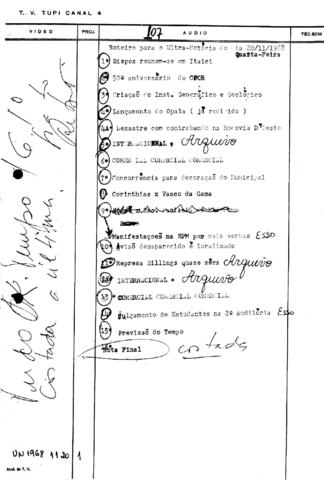 T. V. TUPI CANAL 4
VIDEO PROJ. AUDIO TEC-SOM
107
Roteiro para o Ultra-Notícia do dia 20/11/1968
Quarta-Feira
1• Bispos reunem-se em Itaici
2• 50º aniversário do CPOR
3• Criação do Inst. Geográfico e Geológico
4• Lançamento do Opala ( já redigido )
4A• Desastre com contrabando na Rodovia D'oeste
5• INTERNACIONAL • Arquivo
6• COMERCIAL COMERCIAL COMERCIAL
7• Concorrência para decoração do Municipal
8• Corinthias x Vasco da Gama
9•
Manifestações na EPM por mais verbas ESSO
10• Avião desaparecido é localizado
11• Represa Billings quase sêca Arquivo
12• INTERNACIONAL • Arquivo
13 COMERCIAL COMERCIAL COMERCIAL
14• Julgamento de Estudantes na 2ª Auditória ESSO
15• Previsão do Tempo
16• Nota Final costada
tempo 16/0
costada a ultima.
UN 1968 11 20 1
Mod. 35 T. V.